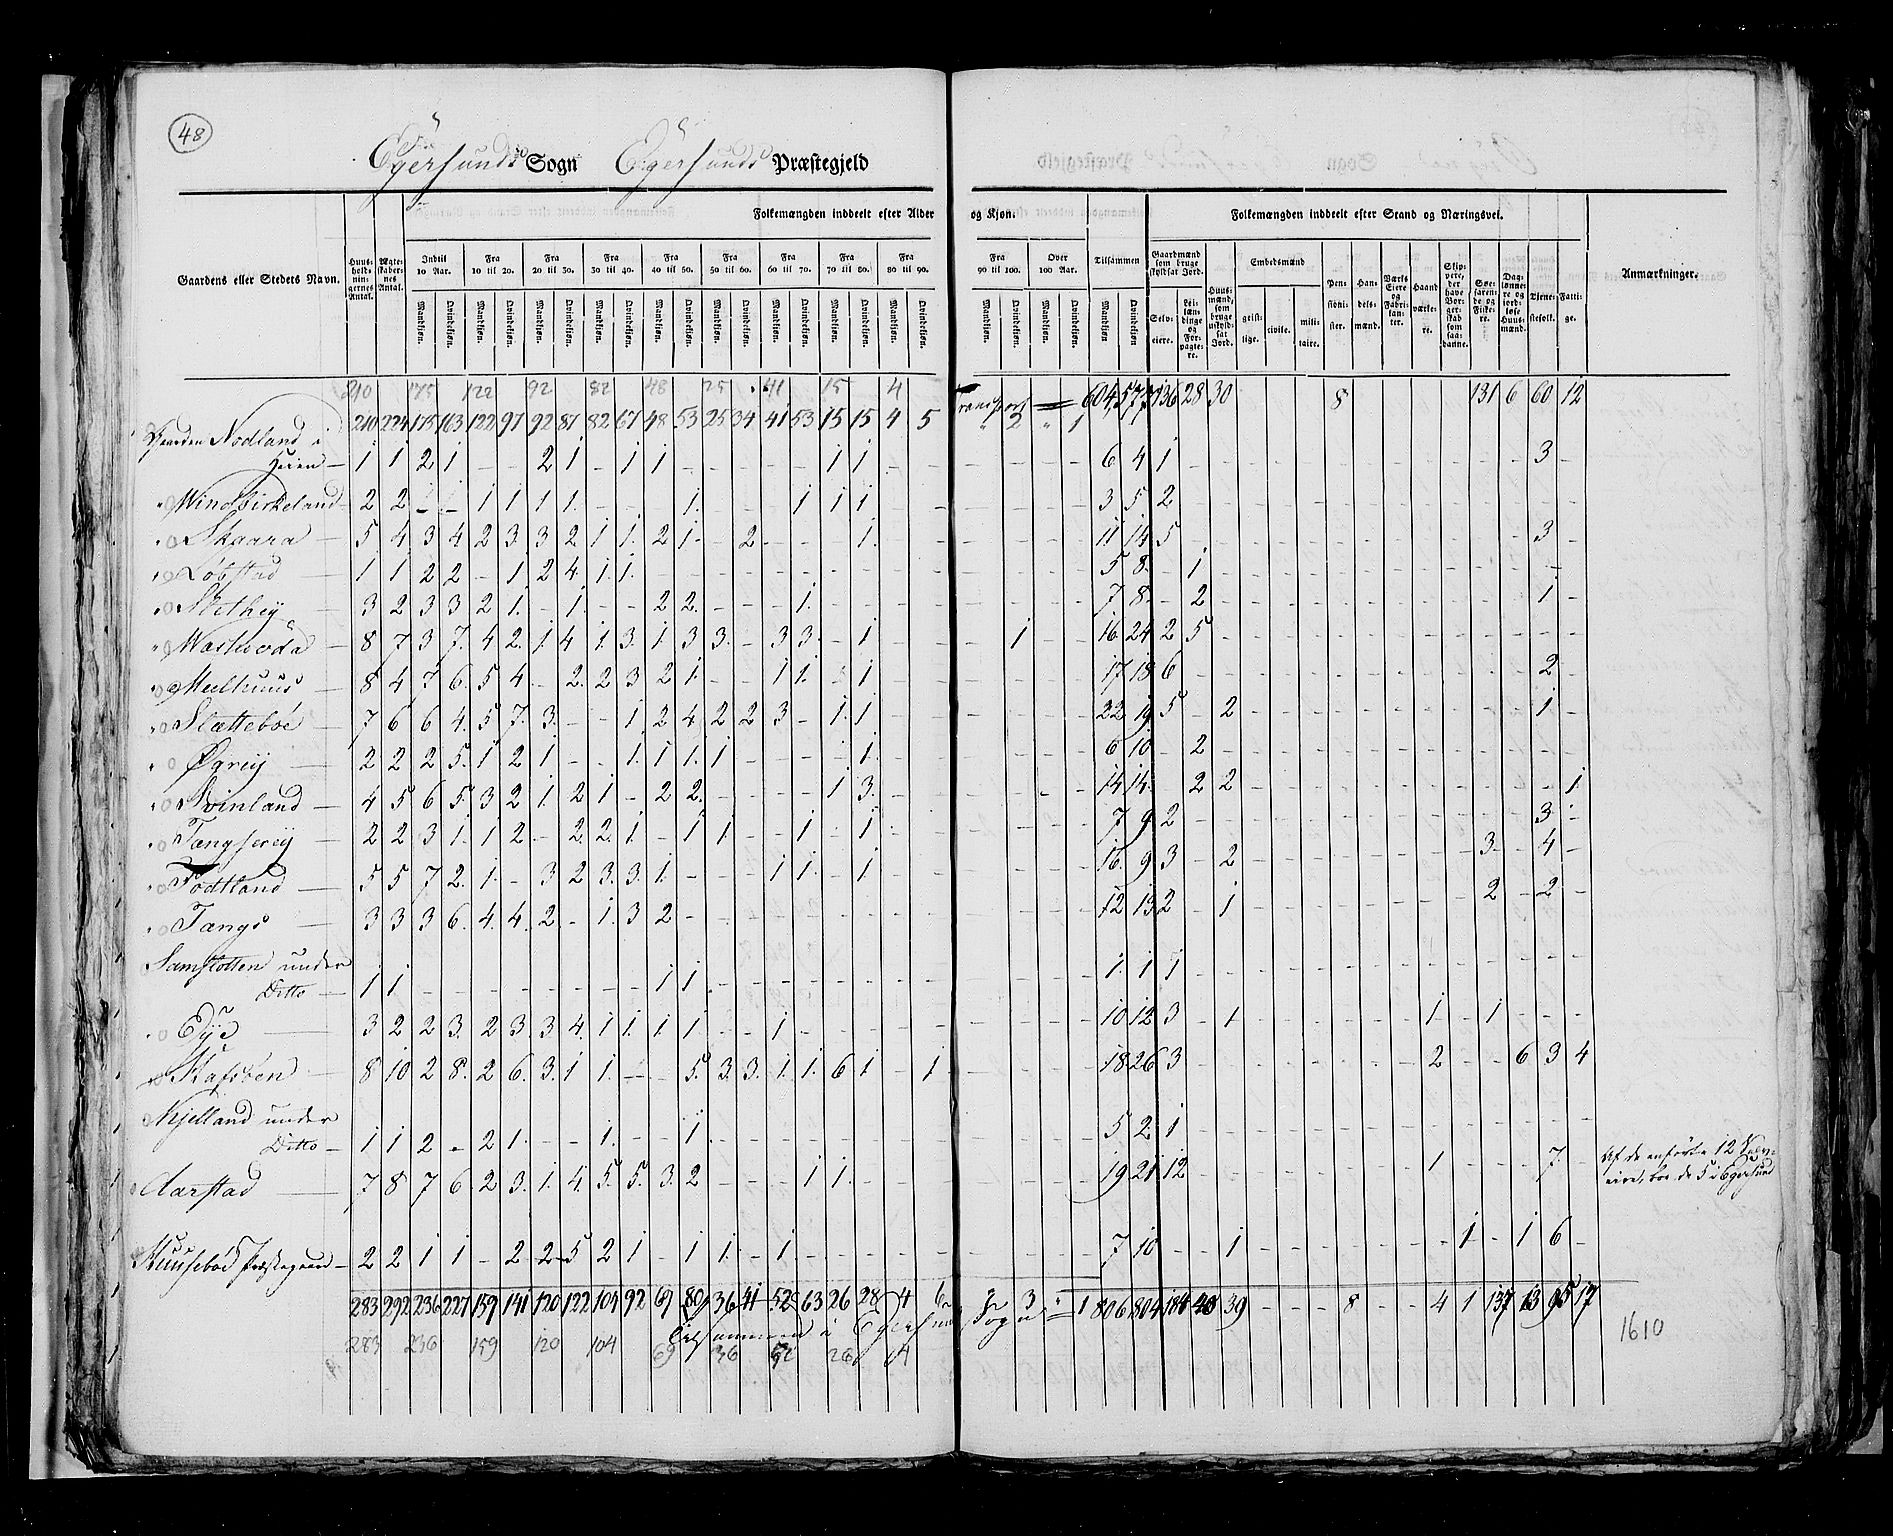 48
Egersunds Sogn Egersunds Præstegjeld
Folkemængden inddeelt efter Alder og Kjøn.
Folkemængden inddeelt efter Stand og Næringsvei.
Gaardens eller Stedets Navn. Huusholdningernes Antal. Ægteskabernes Antal. Indtil 10 Aar. Fra 10 til 20. Fra 20 til 30. Fra 30 til 40. Fra 40 til 50. Fra 50 til 60. Fra 60 til 70. Fra 70 til 80. Fra 80 til 90. Fra 90 til 100. Over 100 Aar. Tilsammen Gaardmænd som bruge skyldsat Jord. Huusmænd, som bruge uskyldsat Jord. Embedsmænd Pensionister. Handelsmænd. Værks Eiere og Fabrikanter. Haandværkere. Skippere, der have Borgerskab som saadanne. Søefarende og Fiskere. Daglønnere og jordløse Huusmænd. Tjenestefolk. Fattige. Anmærkninger.
Mandkjøn. Qvindekjøn. Selveiere. Leilændinge og Forpagtere. geistlige. civile. militaire.
210 175 122 92 82 48 25 41 15 4
210 224 175 163 122 97 92 87 82 67 48 53 25 34 41 53 15 15 4 5 Transport " 2 " 1 604 577 136 28 30 8 131 6 60 12
Gaarden Nodland i
Heien 1 1 2 1 - - 2 1 - 1 1 - - - - - 1 1 - - 6 4 1 3
Windbirkeland 2 2 - - 1 1 1 1 - - - 1 - - - 1 1 1 3 5 2
Skaara 5 4 3 4 2 3 3 2 1 1 2 1 - 2 - - - 1 11 14 5 3
Løbstad 1 1 2 2 - 1 2 4 1 1 5 8 - 1
3 2 3 3 2 1 - 1 - - 2 2 - - - 1 7 8 - 2 1
8 7 3 7 4 2 1 4 1 3 1 3 3 - 3 3 - 1 1 16 24 2 5
Meelhuus 8 4 7 6 5 4 - 2 2 3 2 1 - - 1 1 - 1 17 18 6 2
Slættebøe 7 6 6 4 5 7 3 - - 1 2 4 2 2 3 - 1 1 22 19 5 - 2 1
Øgreij 2 2 2 5 1 2 1 - - 1 1 1 1 - - - - 1 6 10 - 2
Svinland 4 5 6 5 3 2 1 2 1 - 2 2 - - - - 1 3 14 14 - 2 2 1
2 2 3 1 1 2 - 2 2 1 - 1 1 - - 1 - 1 7 9 2 3
Fodtland 5 5 7 2 1 - 3 2 3 3 1 - - - 1 1 - 1 16 9 3 - 2 3 - 4
Tængs 3 3 3 6 4 4 2 - 1 3 2 12 13 2 - 1 2 - 2
under
Ditto 1 1 - - - - - - - - 1 1 1 1 1
Edye 3 2 2 3 2 3 3 4 1 1 1 1 - - 1 10 12 3 - 1 1 - 1
8 10 2 8 2 6 3 1 1 - - 5 3 3 1 1 6 1 - 1 18 26 3 2 - - 6 3 4
Kjelland under
Ditto 1 1 2 - 2 1 - - 1 - - 1 5 2 1
Aarstad 7 8 7 6 2 3 1 4 5 5 3 2 - - - 1 1 19 21 12 1 7
Af de anførte 12 Selv-
eiere, boe de 5 i Egersund
Huusebøe Præstegaard 2 2 1 1 - 2 2 5 2 1 - 1 1 - 1 7 10 - - 1 1 - 1 6
283 292 236 227 159 141 120 122 104 92 69 80 36 41 52 63 26 28 4 6 3 1 806 804 184 40 39 8 4 1 137 13 95 17
Tilsammen i Egersunds Sogn
283 236 159 120 104 69 36 52 26 4
1610